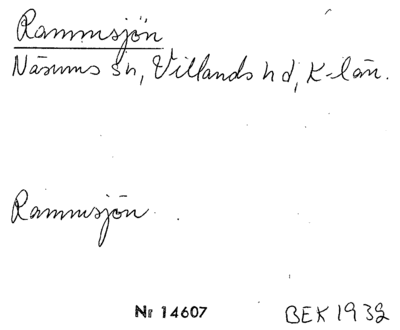 Rammsjön
Näsums sn, Villands hd, K-län.
Rammsjön
Nr 14607 BEK 1932